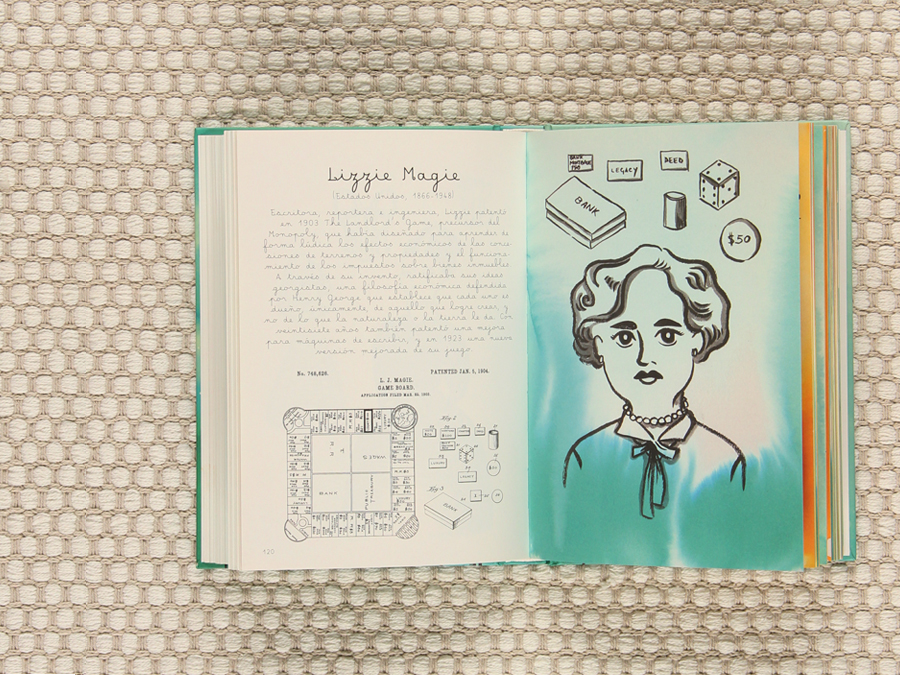 Lizzie Magie
(Estados Unidos, 1866-1948)
Escritora, reportera e ingeniera, Lizzie patentó
en 1903 The Landlord's Game, precursor del
Monopoly, que había diseñado para aprender de
forma lúdica los efectos económicos de las conce-
siones de terrenos y propiedades y el funciona-
miento de los impuestos sobre bienes inmuebles.
A través de su invento, ratificaba sus ideas
georgistas, una filosofía económica defendida
por Henry George que establece que cada uno es
dueño, únicamente, de aquello que logre crear, y
no de lo que la naturaleza o la tierra le da. Con
veintisiete años también patentó una mejora
para máquinas de escribir, y en 1923 una nueva
versión mejorada de su juego.
No. 748,626.
PATENTED JAN. 5, 1904.
L. J. MAGIE.
GAME BOARD.
APPLICATION FILED MAR. 23, 1903.
Fig. 2
BANK
PUBLIC
TREASURY
Fig. 3
BANK
120
LEGACY
DEED
BANK
$50